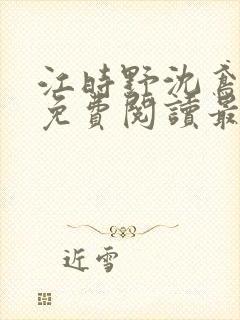 江時野沈鸢
免費閱讀最
近雪